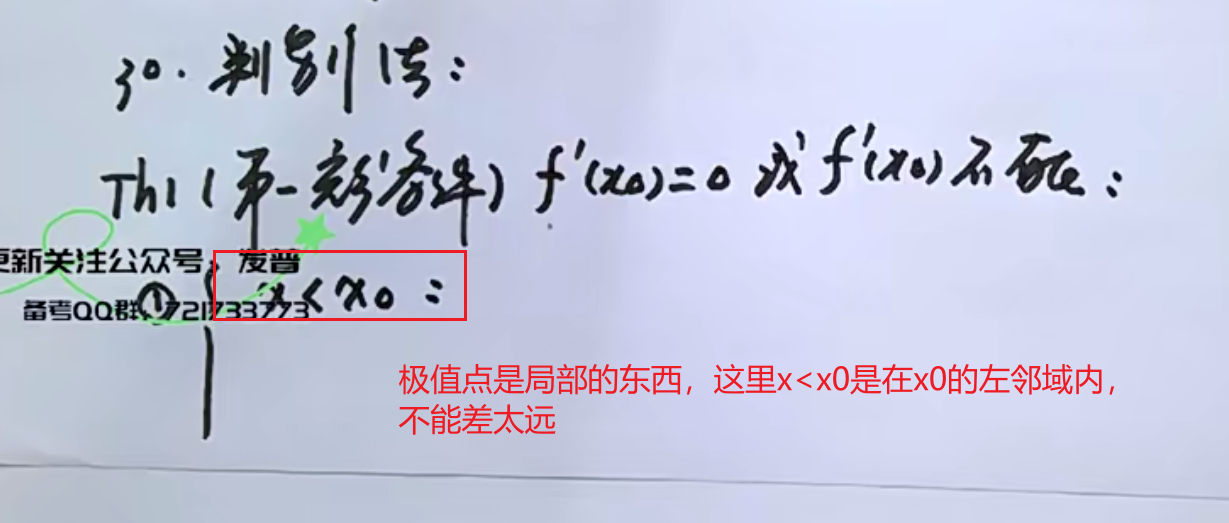 3°. 判别法:
Th1(第一充分条件) f'(x0)=0 或 f'(x0)不存在:
更新关注公众号:发普
① x<x0:
备考QQ群:721733773
极值点是局部的东西，这里x<x0是在x0的左邻域内，
不能差太远